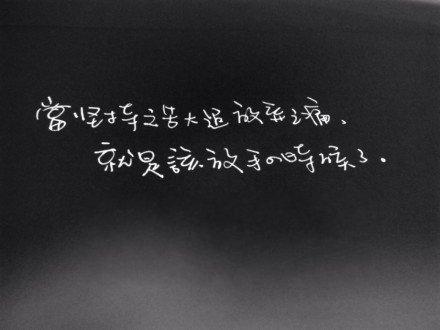 當堅持之苦大過放棄之痛、
就是該放手的時候了。